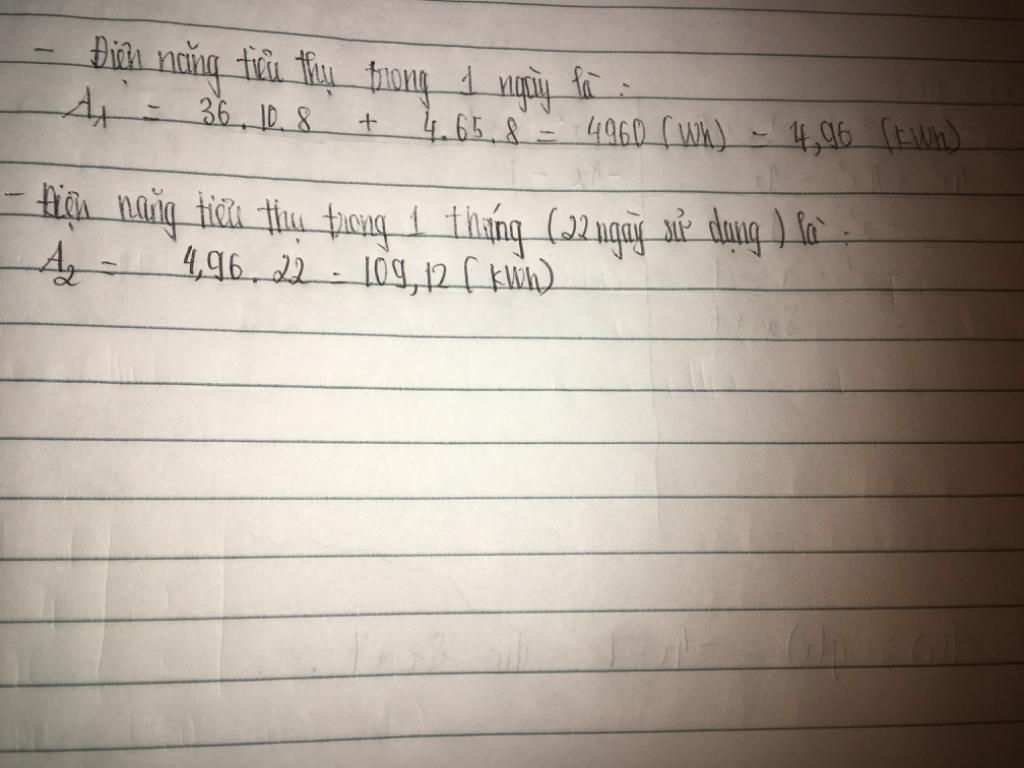 - Điện năng tiêu thụ trong 1 ngày là :
A₁ = 36.10.8 + 4.65.8 = 4960 (Wh) = 4,96 (kWh)
- Điện năng tiêu thụ trong 1 tháng (22 ngày sử dụng) là :
A₂ = 4,96.22 = 109,12 (kWh)